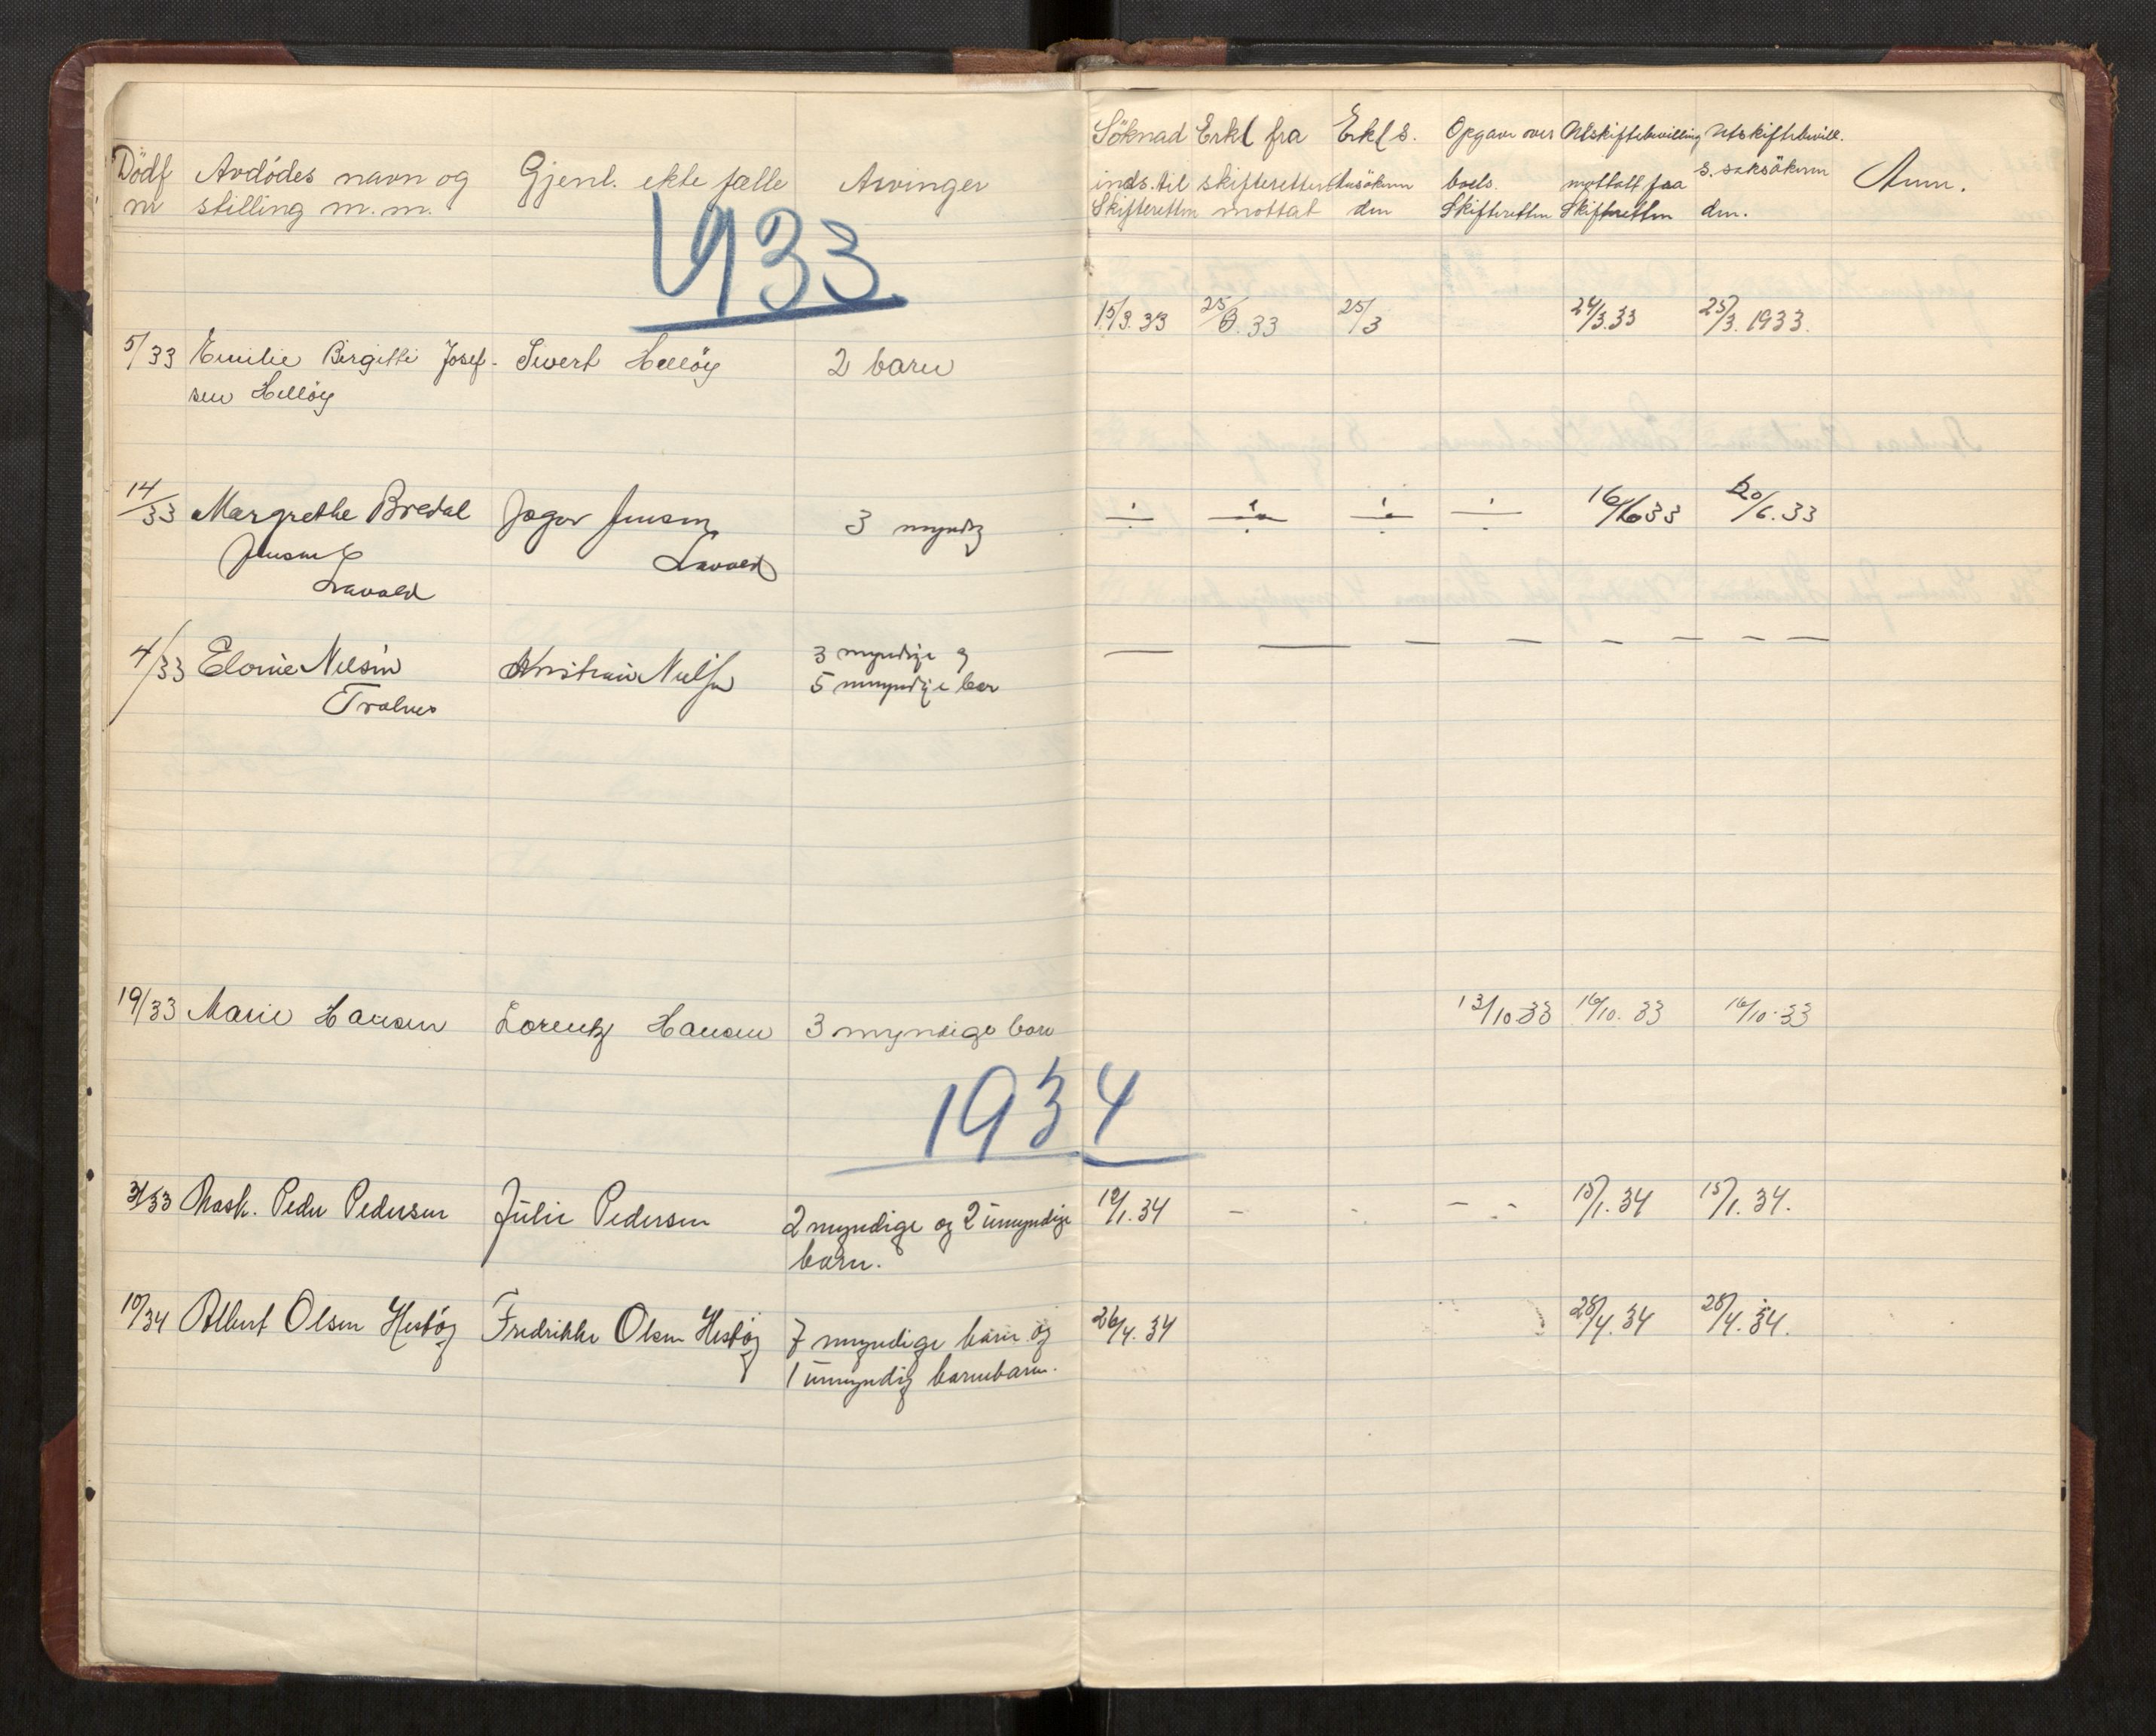 Dödf Avdödes navn og Gjenl. ektefælle Arvinger
nr stilling m.m.
Söknad Erkl fra Erkl s. Opgave over Utskiftebevilling Utskiftebevill.
inds. til skifteretten saksökeren boets. mottatt fra s. saksökeren Anm.
Skifteretten mottat den Skifteretten Skifteretten den.
1933
15/3.33 25/3.33 25/3 24/3.33 25/3.1933.
5/33 Emilie Birgitte Josef- Sivert Hellöy 2 barn
sen Hellöy
14/33 Margrethe Bredal Jensen 3 myndig ÷ ÷ ÷ ÷ 16/6 33 20/6.33
Jensen
Lavold Lavold
4/33 Nilsen Kristian Nilsen 3 myndige og — — — — — — — —
Tralnes 5 umyndige barn
19/33 Marie Hansen Lorentz Hansen 3 myndige barn 13/10-33 16/10.33 16/10-33
1934
31/33 Mask. Peder Pedersen Julie Pedersen 2 myndige og 2 umyndige 12/1.34 - - - - 15/1.34 15/1.34.
barn.
10/34 Albert Olsen Hestöy Fredrikke Olsen Hestöy 7 myndige barn og 26/4.34 28/4.34 28/4.34.
1 umyndig barnebarn.